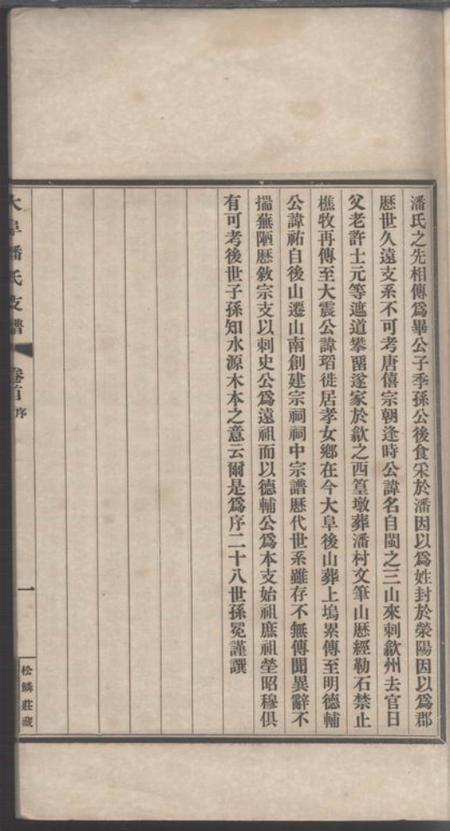 潘氏之先相傳爲畢公子季孫公後食采於潘因以爲姓封於滎陽因以爲郡
歷世久遠支系不可考唐僖宗朝逢時公諱名自閩之三山來刺歙州去官日
父老許士元等遮道攀留遂家於歙之西篁墩葬潘村文筆山歷經勒石禁止
樵牧再傳至大震公諱瑫徙居孝女鄉在今大阜後山葬上塢累傳至明德輔
公諱祐自後山遷山南創建宗祠祠中宗譜歷代世系雖存不無傳聞異辭不
揣蕪陋歷敘宗支以刺史公爲遠祖而以德輔公爲本支始祖庶祖塋昭穆俱
有可考後世子孫知水源木本之意云爾是爲序二十八世孫冕謹譔
大阜潘氏支譜
卷首
序
一
松鱗莊藏